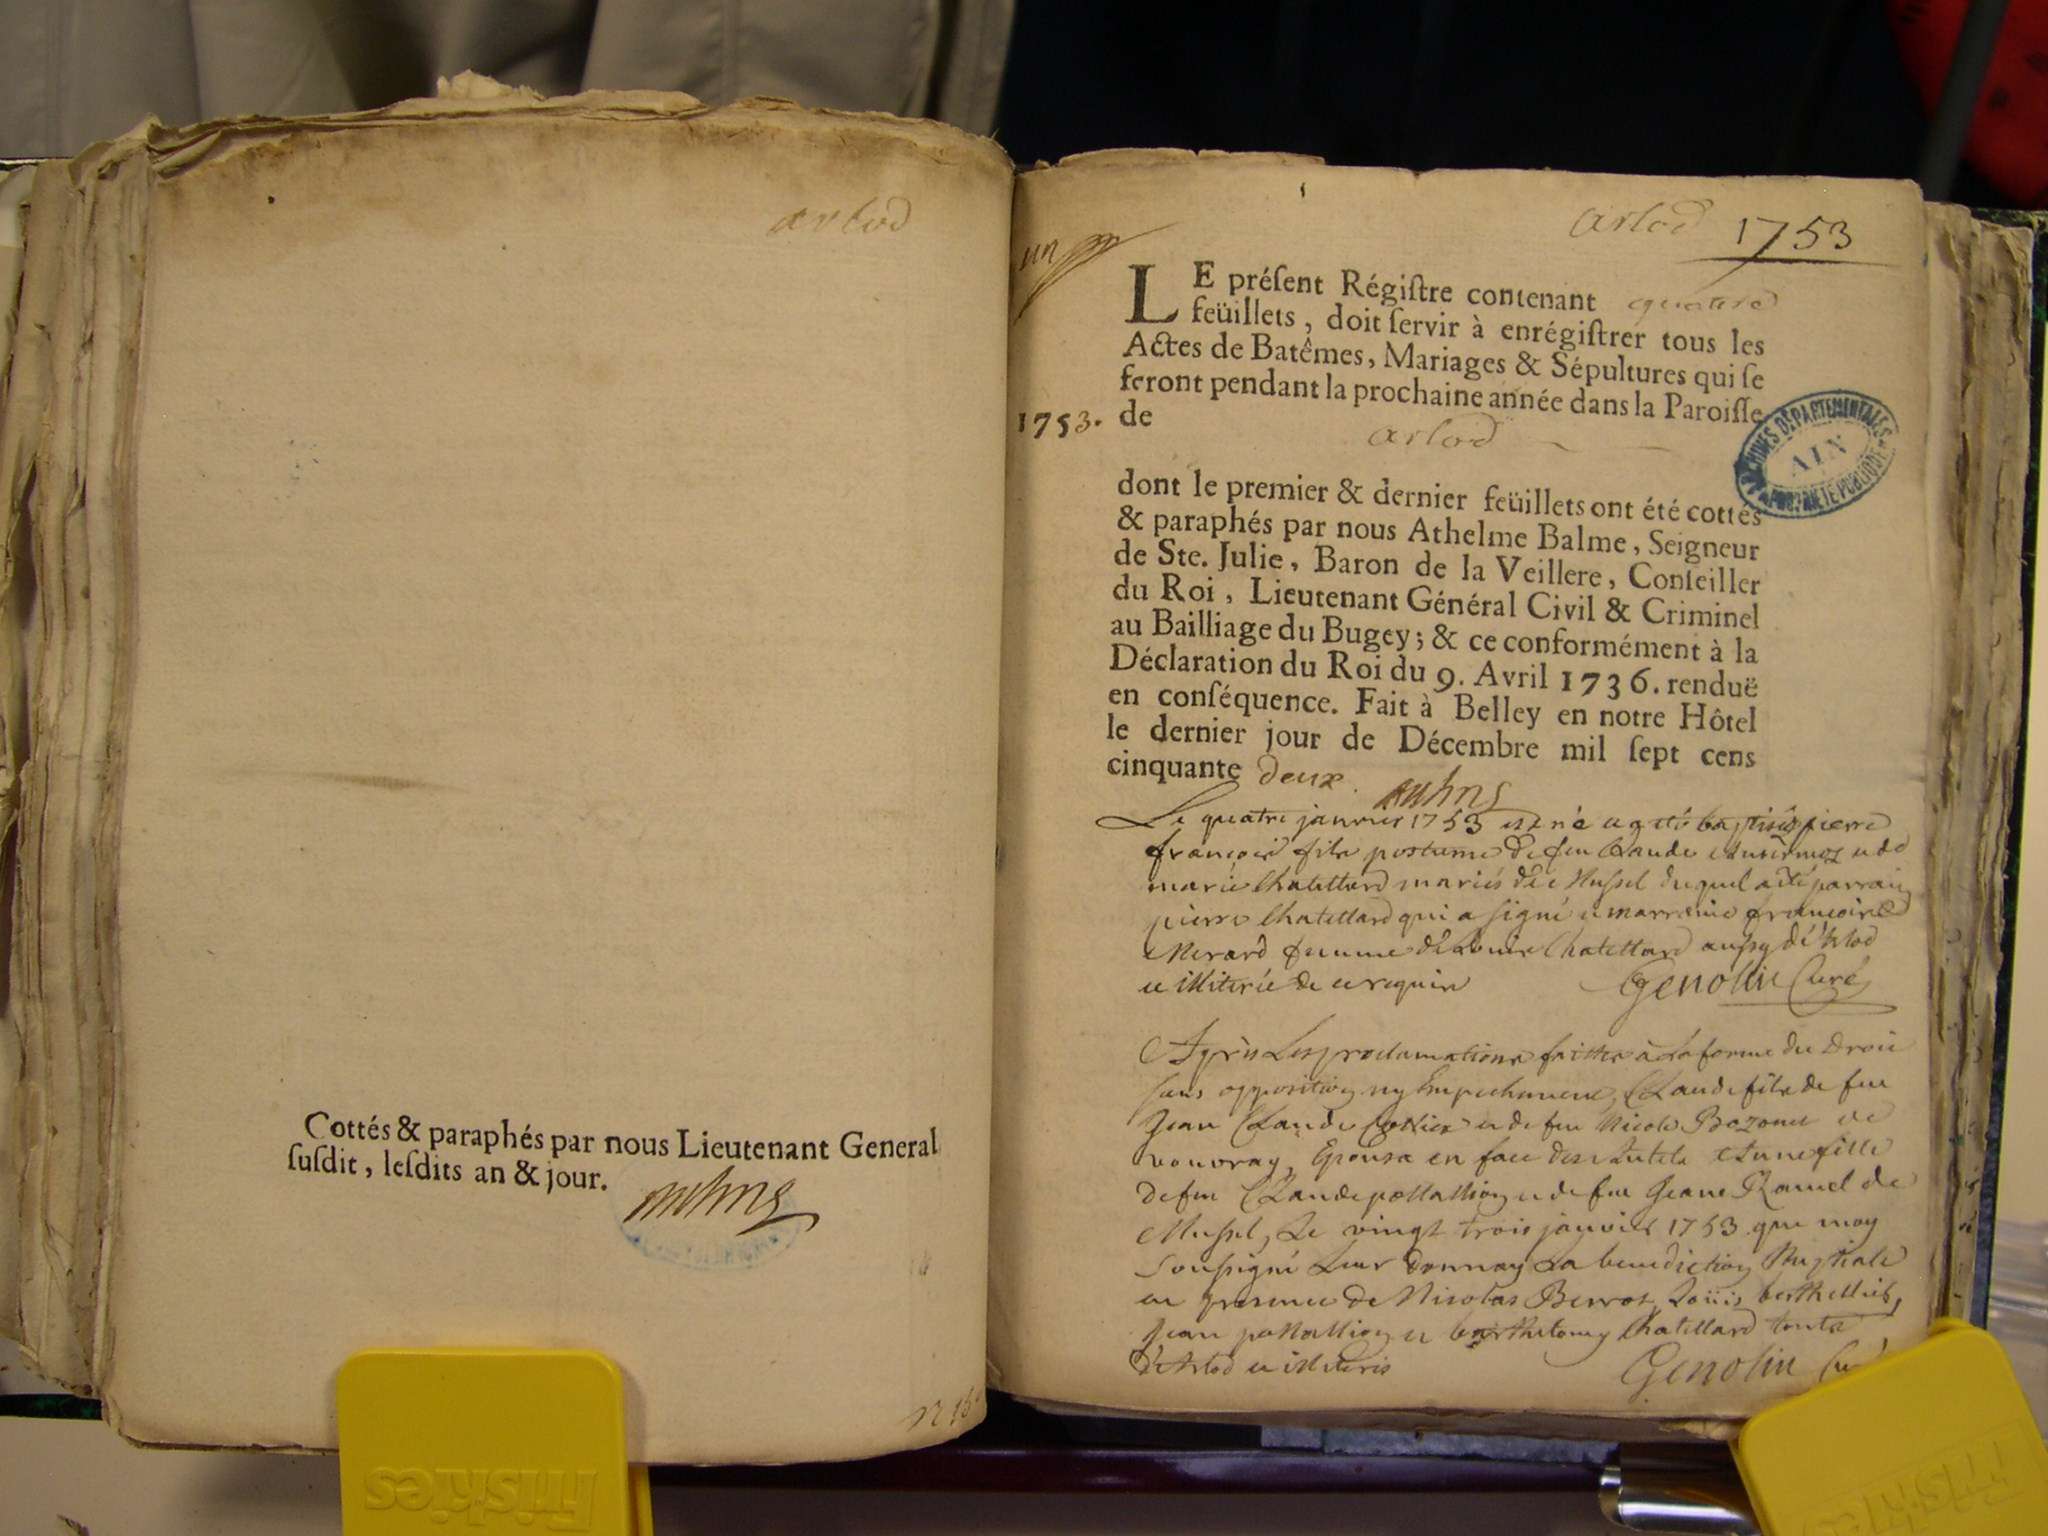 arlod
Cottés & paraphés par nous Lieutenant General
ſuſdit, leſdits an & jour.
un
arlod 1753
LE préſent Régiſtre contenant quatre
feüillets, doit ſervir à enrégiſtrer tous les
Actes de Batêmes, Mariages & Sépultures qui ſe
feront pendant la prochaine année dans la Paroiſſe
1753. de
arlod
ARCHIVES DÉPARTEMENTALES
AIN
dont le premier & dernier feüillets ont été cottés
& paraphés par nous Athelme Balme, Seigneur
de Ste. Julie, Baron de la Veillere, Conſeiller
du Roi, Lieutenant Général Civil & Criminel
au Bailliage du Bugey; & ce conformément à la
Déclaration du Roi du 9. Avril 1736. renduë
en conſéquence. Fait à Belley en notre Hôtel
le dernier jour de Décembre mil ſept cens
cinquante deux.
Le quatre janvier 1753 est né et a été baptisé pierre
françois fils postume de feu Claude et de
marie Chatellard mariés de Mussel duquel a été parrain
pierre Chatellard qui a signé et marraine françoise
femme de Louis Chatellard aussy d'Arlod
et illiterée de ce requise Genolin Curé
Après Les proclamations faittes à La forme du Droit
sans opposition ny Empechement, Claude fils de feu
Jean Claude et de feu Nicole Bozonet de
vouvray, Epousa en face des Autels fille
de feu Claude et de feu Jeane Ramel de
Mussel, Le vingt trois janvier 1753 que moy
Soussigné Leur donnay La benediction Nuptiale
en presence de Nicolas Berrot, Loüis berthellier,
Jean et barthelemy Chatellard touts
d'Arlod et illiteris Genolin Curé
Friskies
Friskies